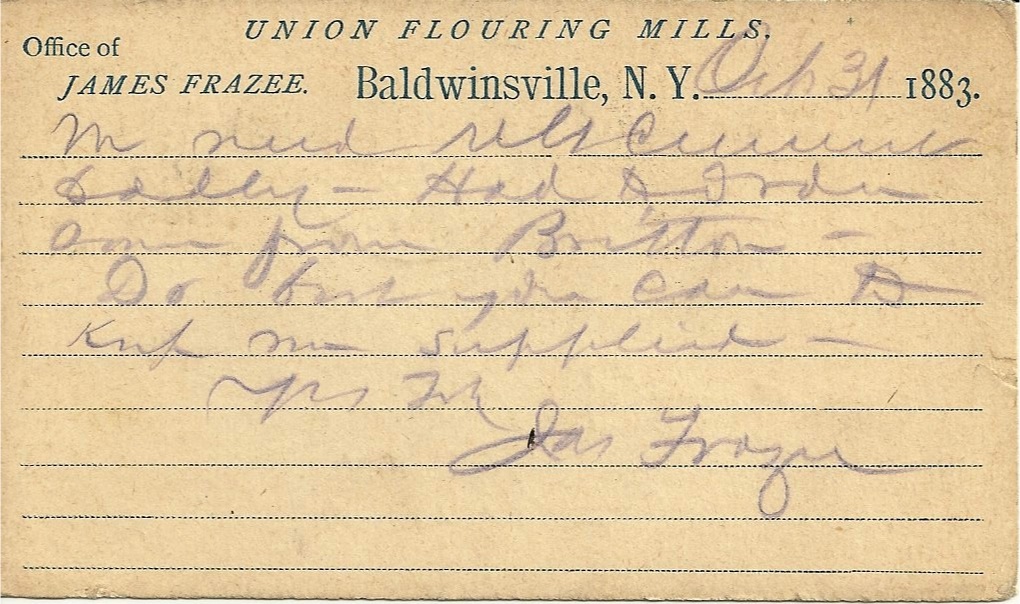 UNION FLOURING MILLS.
Office of
JAMES FRAZEE. Baldwinsville, N. Y. Oct 31 1883.
need Cement
badly - Had to order
some from Britton -
Do best you can to
Keep me supplied -
Yrs Trly
Jas Frazee